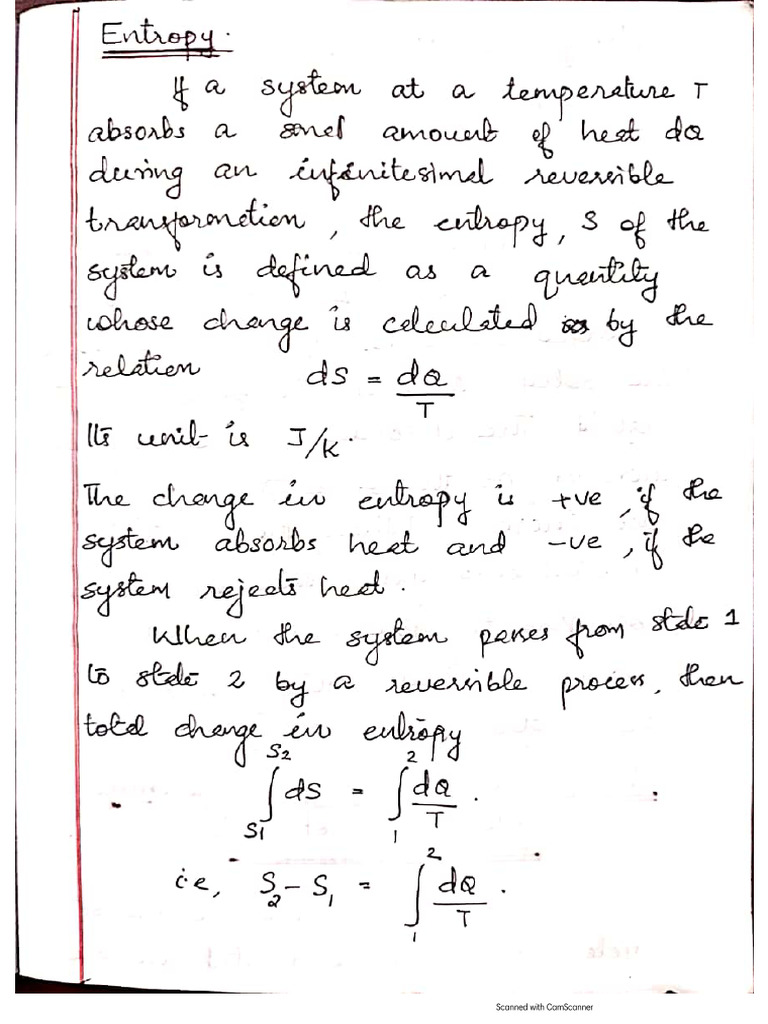 Entropy.
If a system at a temperature T
absorbs a small amount of heat dQ
during an infinitesimal reversible
transformation, the entropy, S of the
system is defined as a quantity
whose change is calculated by the
relation dS = dQ/T
Its unit is J/K.
The change in entropy is +ve, if the
system absorbs heat and -ve, if the
system rejects heat.
When the system passes from state 1
to state 2 by a reversible process, then
total change in entropy
∫_{S1}^{S2} dS = ∫_1^2 dQ/T.
i.e, S_2 - S_1 = ∫_1^2 dQ/T.
Scanned with CamScanner